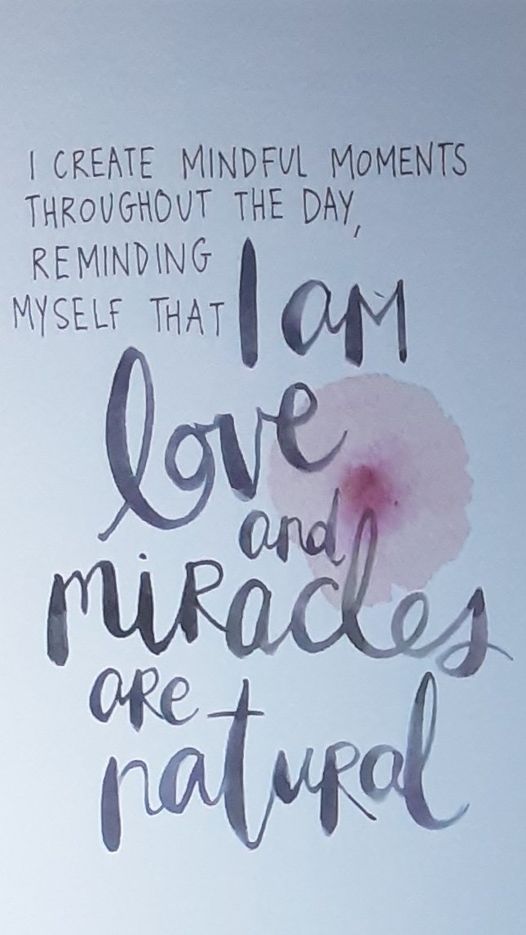 I CREATE MINDFUL MOMENTS
THROUGHOUT THE DAY,
REMINDING
MYSELF THAT I am
love
and
miracles
are
natural